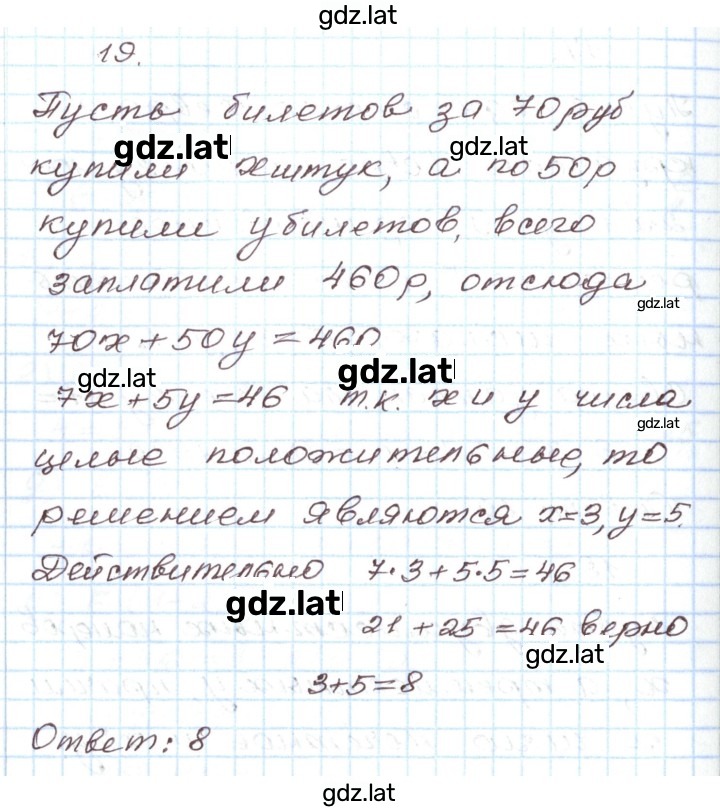 gdz.lat
19.
Пусть билетов за 70 руб
gdz.lat gdz.lat
купили x штук, а по 50р
купили y билетов, всего
заплатили 460р, отсюда
gdz.lat
70x + 50y = 460
gdz.lat gdz.lat
7x + 5y = 46 т.к. x и y числа
gdz.lat
целые положительные, то
решением являются x=3, y=5.
Действительно 7·3 + 5·5 = 46
gdz.lat
21 + 25 = 46 верно
gdz.lat
3+5=8
Ответ: 8
gdz.lat